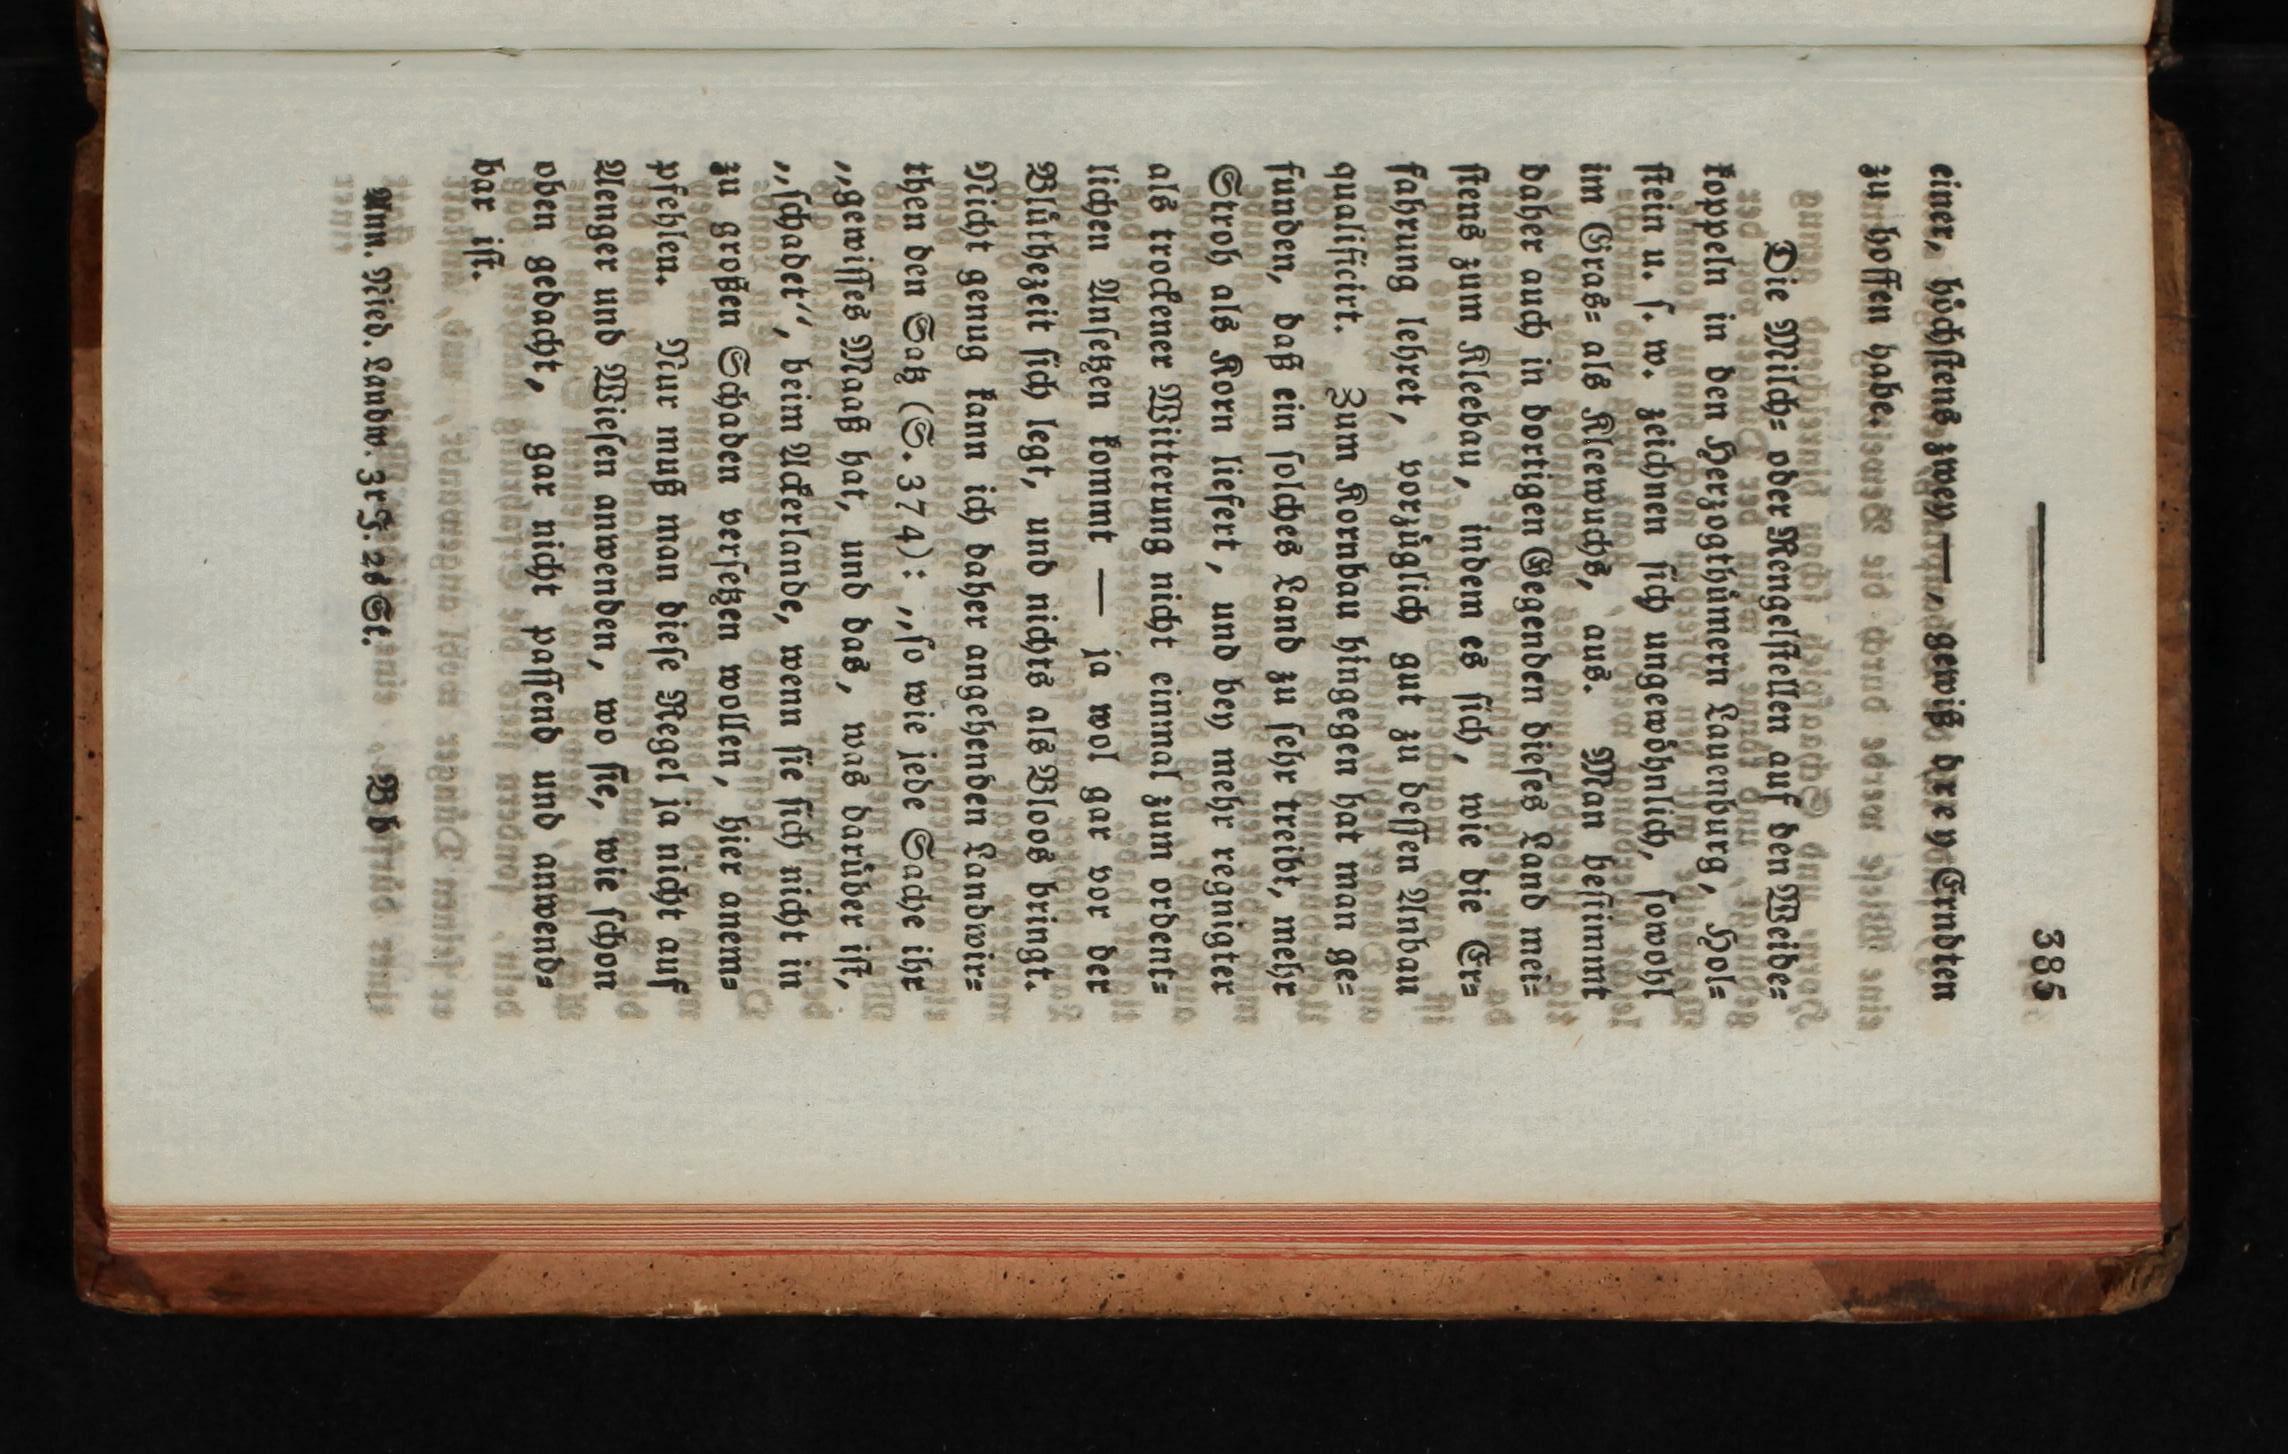 385
einer, höchſtens zwey —, gewiß drey Erndten
zu hoffen habe.
Die Milch- oder Mengelſtellen auf den Weide-
koppeln in den Herzogthümern Lauenburg, Hol-
ſtein u. ſ. w. zeichnen ſich ungewöhnlich, ſowohl
im Gras- als Kleewuchs, aus. Man beſtimmt
daher auch in dortigen Gegenden dieſes Land mei-
ſtens zum Kleebau, indem es ſich, wie die Er-
fahrung lehret, vorzüglich gut zu deſſen Anbau
qualificirt. Zum Kornbau hingegen hat man ge-
funden, daß ein ſolches Land zu ſehr treibt, mehr
Stroh als Korn liefert, und bey mehr regnigter
als trockener Witterung nicht einmal zum ordent-
lichen Anſetzen kommt — ja wol gar vor der
Blüthezeit ſich legt, und nichts als Bloos bringt.
Nicht genug kann ich daher angehenden Landwir-
then den Satz (S. 374): „ſo wie jede Sache ihr
„gewiſſes Maaß hat, und das, was darüber iſt,
„ſchadet“, beim Ackerlande, wenn ſie ſich nicht in
zu großen Schaden verſetzen wollen, hier anem-
pfehlen. Nur muß man dieſe Regel ja nicht auf
Aenger und Wieſen anwenden, wo ſie, wie ſchon
oben gedacht, gar nicht paſſend und anwend-
bar iſt.
Ann. Nied. Landw. 3r J. 2s St. Bb